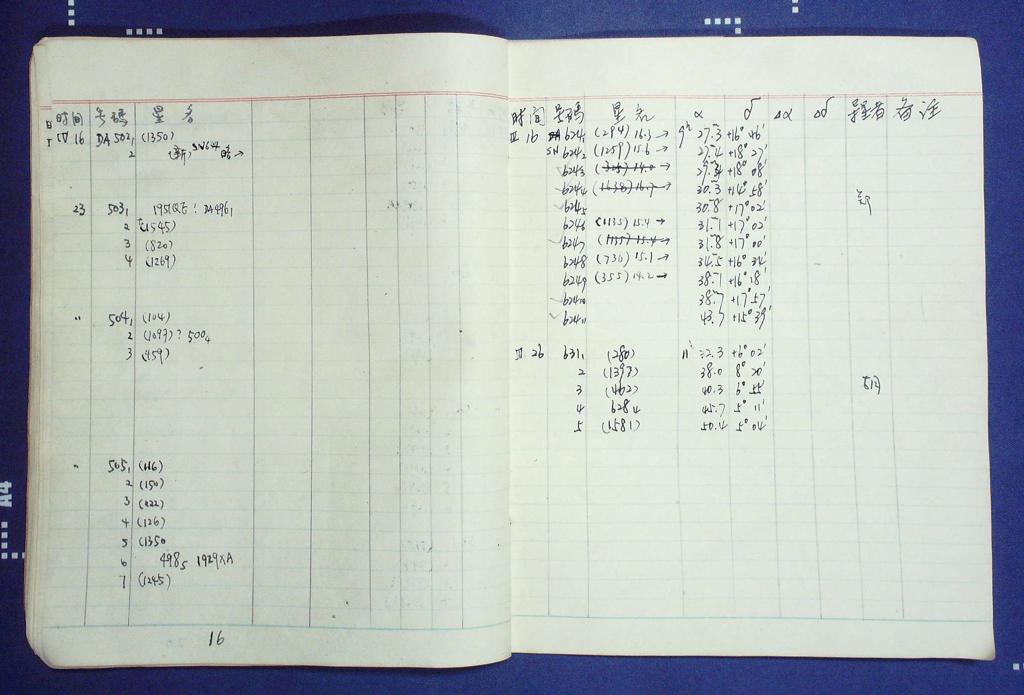 时间 号码 星名
IV 16 DA 502₁ (1350)
2 (新) SN644 略→
23 503₁ 1951QE? DA496₁
2 (1545)
3 (820)
4 (1269)
" 504₁ (104)
2 (1097)? 500₄
3 (459)
" 505₁ (116)
2 (150)
3 (822)
4 (126)
5 (1350
6 498₅ 1929XA
7 (1245)
16
时间 号码 星名 α δ Δα Δδ 量者 备注
III 16 624₁ (294) 16.3→ 9ʰ 27.3 +16° 46'
SN 624₂ (1259) 15.6→ 27.4 +18° 27'
624₃ (325) 14.0→ 29.4 +18° 08'
624₄ (1638) 16.7→ 30.3 +14° 58'
624₅ 30.8 +17° 02'
624₆ (1135) 15.4→ 31.1 +17° 02'
624₇ (1135) 15.4→ 31.8 +17° 00'
624₈ (736) 15.1→ 34.5 +16° 34'
624₉ (355) 14.2→ 38.1 +16° 18'
624₁₀ 38.7 +17° 57'
624₁₁ 43.7 +15° 39'
III 26 631₁ (280) 11ʰ 32.3 +6° 02'
2 (1397) 38.0 8° 20'
3 (462) 40.3 6° 55'
4 628₄ 45.7 5° 11'
5 (1581) 50.4 5° 04'